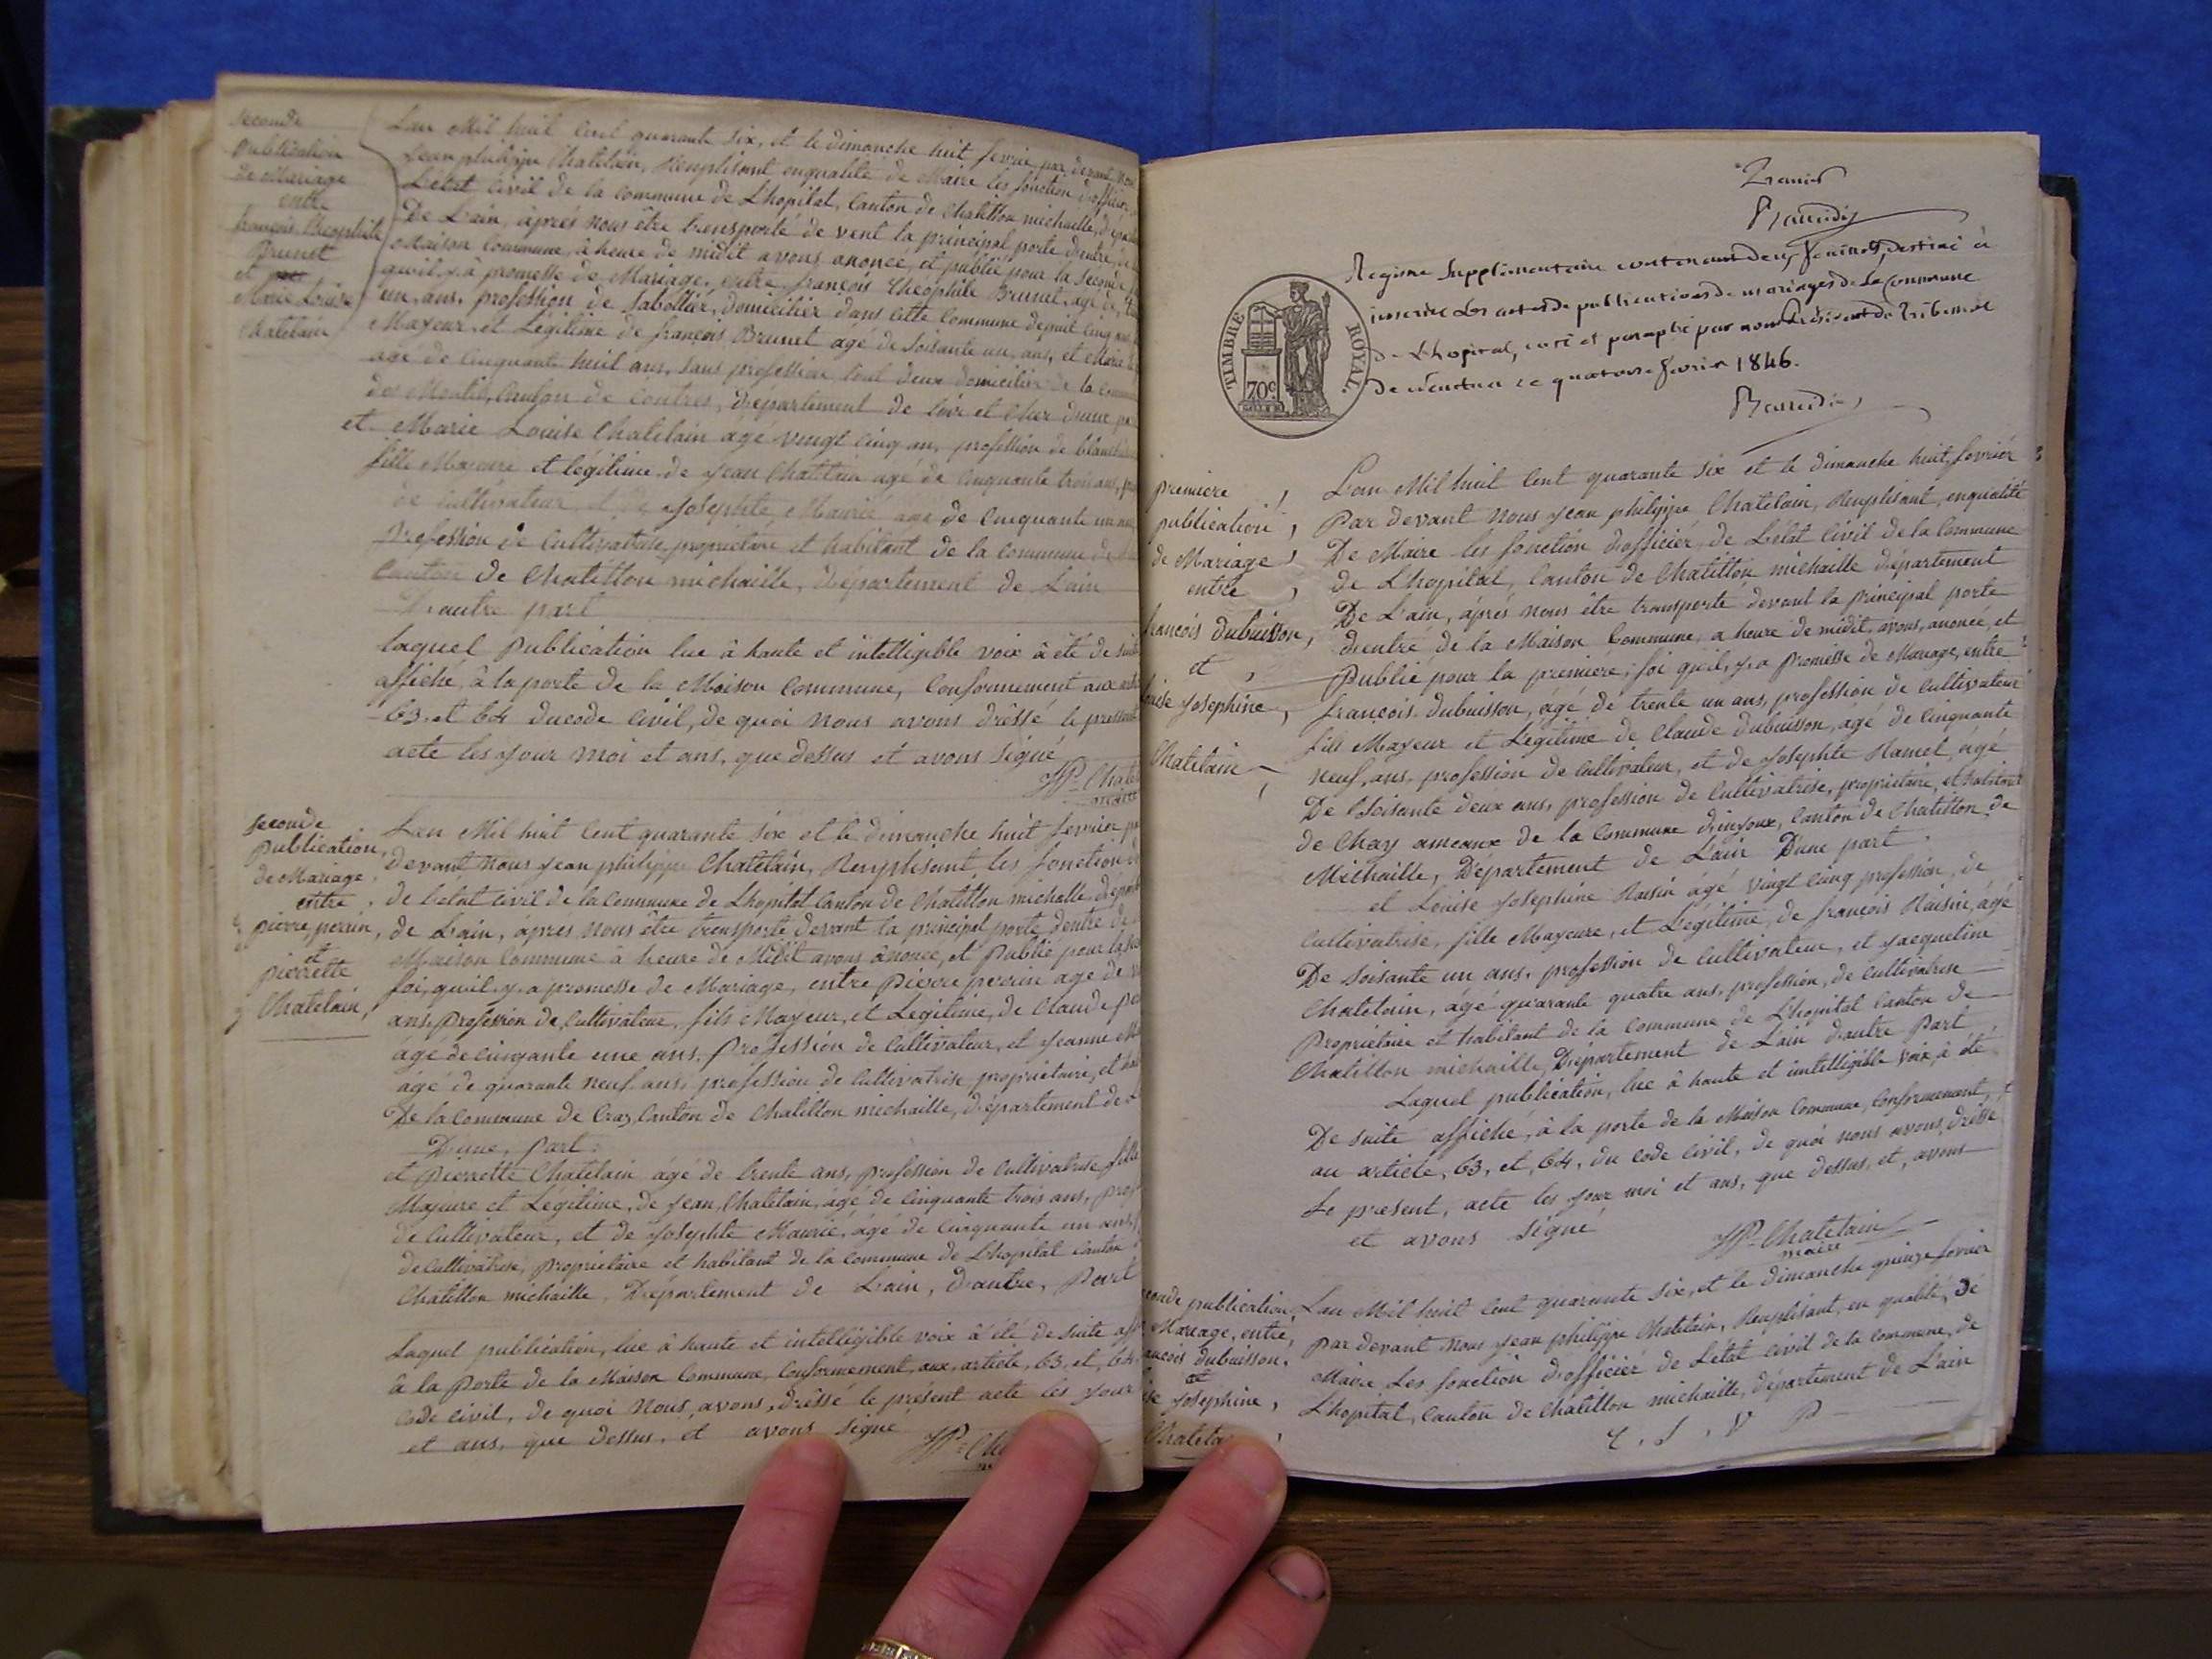 seconde
publication
de Mariage
entre
françois théophile
Brunet
et
Marie Louise
Chatelain
Lan Mil huit Cent quarante six, et le dimanche huit fevrier par devant nous
Jean philippe Chatelain, Remplisant enqualité de Maire les fonction d'officier
Letat Civil de la commune de Lhopital, Canton de Chatillon michaille, dépa
De Lain, après nous être transporté de vent la principal porte dentré, de
Maison Commune, à heure de midit avons anoncé, et publié pour la Seconde
quil, y, à promesse de Mariage, entre françois théophile Brunet, agé de
un, ans, profession de Sabottier, domicilier dans cette Commune depuit cinq
Mayeur et Légitime de françois Brunet agé de Soisante un, ans, et Marie
agé de Cinquante huit ans, sans profession tout deux domicilier de la comm
des Montils, Canton de Contres, Département de Loire et Cher dune pa
et Marie Louise Chatelain agé vingt cinq an, profession de blanch
fille Mayeure et légitime de Jean Chatelain agé de Cinquante trois ans,
de Cultivateur et de Josephte Maurié agé de Cinquante un
Profession de Cultivatrise, propriétaire et habitant de la Commune de
Canton de Chatillon michaille, Département de Lain
D'autre part
laquel Publication lue à haute et intelligible voix à été de suit
affiché, à la porte de la Maison Commune, Conformement aux
63. et 64 du code Civil, de quoi nous avons dressé le present
acte les jour moi et ans, que dessus et avons Signé
JP. Chate
maire
seconde
publication,
de Mariage
entre
pierre, perrin,
et
pierrette
Chatelain,
Lan Mil huit Cent quarante Six et le dimanche huit fevrier
devant nous Jean philippe Chatelain, Remplisant, les fonction
de Letat Civil de la Commune de Lhopital Canton de Chatillon michaille, dépar
de Lain, après nous être transporté devant la principal porte dentré de
Maison Commune à heure de Midit avons anoncé, et Publié pour la
foi, quil, y, a promesse de Mariage, entre Pierre perrin agé de
ans, Profession de Cultivateur, fils Mayeur, et Légitime, de Claude pe
âgé de cinqante une ans, Profession de Cultivateur, et Jeanne
agé de quarante neuf ans, profession de Cultivatrise propriétaire, et ha
De la Commune de Craz, Canton de Chatillon michaille, département de L
Dune, Part.
et Pierrette Chatelain agé de trente ans, profession de Cultivatrise fille
Majeure et Légitime, de Jean, Chatelain, agé de Cinquante trois ans, prof
de Cultivateur, et de Josephte Maurié, agé de Cinquante un ans,
de Cultivatrise, propriétaire et habitant de la Commune de Lhopital Canton
Chatillon michaille, Département de Lain, D'autre, Part
Laquel publication, lue à haute et intelligible voix à été de suite aff
à la Porte de la Maison Commune, Conformement, aux, article, 63, et, 64,
Code civil, de quoi nous, avons, dressé le présent acte les jour
et ans, que dessus, et avons Signé
JP. Cha
Registre Supplémentaire contenant deux feuillets, destiné à
inscrire Les actes de publications de mariages de La Commune
de Lhopital, coté et paraphé par nous Président du Tribunal
de Nantua ce quatorze fevrier 1846.
TIMBRE ROYAL.
70c
première
publication,
de Mariage
entre
françois dubuisson,
et
Josephine,
Chatelain
Lan Mil huit Cent quarante six et le dimanche huit, fevriér
Par devant Nous Jean philippe Chatelain, Remplisant, enqualité
De Maire les fonction d'officier, de Létat Civil de la Commune
de Lhopital, Canton de Chatillon michaille département
De Lain, après nous être transporté devant la principal porte
dentré de la Maison Commune, a heure de midit, avons, anoncé, et
Publié pour la première, foi quil, y, a Promesse de Mariage, entre
françois dubuisson, agé de trente un ans, profession de Cultivateur
fils Mayeur et Légitime de Claude dubuisson, agé de Cinquante
neuf, ans, profession de Cultivateur, et de Josephte Hamel, agé
De Soisante deux ans, profession de Cultivatrise, propriétaire, et habitant
de Chay ameaux de la Commune dinjoux, Canton de Chatillon de
Michaille, Département de Lain Dune part
et Louise Josephine Raisin agé vingt Cinq profession, de
Cultivatrise, fille Mayeure, et Légitime, de françois Raisin, agé
De Soisante un ans, profession de Cultivateur, et Jacqueline
Chatelain, âgé quarante quatre ans, profession, de Cultivatrise
Propriétaire et habitant de la Commune de Lhopital Canton de
Chatillon michaille, Département de Lain D'autre Part
Laquel publication, lue à haute et inteltigible voix, à été
De Suite affiché, à la porte de la Maison Commune, Conformement,
au article, 63, et, 64, du Code Civil, de quoi nous avons, dressé
Le present, acte les jour moi et ans, que dessus, et, avons
et avons Signé
JP. Chatelain
maire
publication,
Mariage, entre,
dubuisson,
et
Josephine,
Lan Mil huit Cent quarante six, et le dimanche quinze fevrier
Par devant nous Jean philippe Chatelain, Remplisant, en qualité, de
Maire Les fonction d'officier de Létat Civil de la Commune, de
Lhopital, Canton de Chatillon michaille, département de Lain
T. S. V P